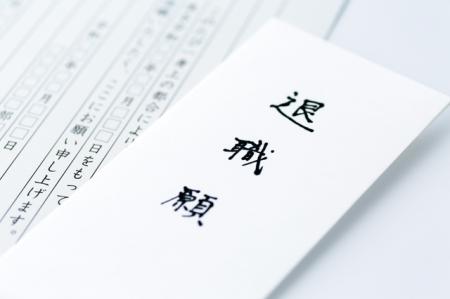 退職願
一身上の都合によ
年□□月□□日をもって
ここにお願い申し上げます。
年□□月□□日
部